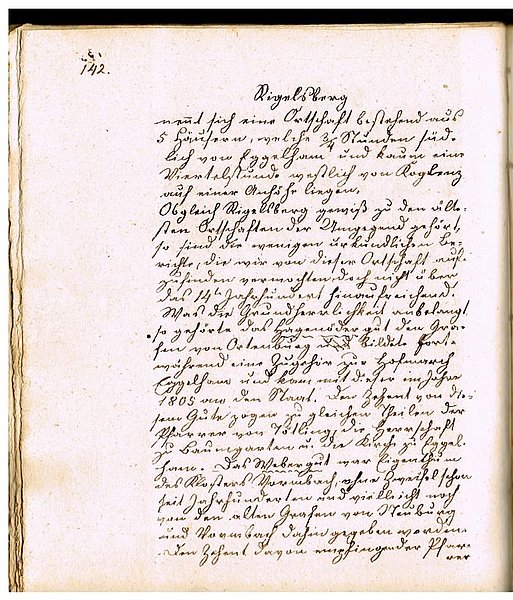 142.
Rigelsberg
nennt sich eine Ortschaft bestehend aus
5 Häusern, welche 3/4 Stunden süd-
lich von Eggelham und kaum eine
Viertelstunde westlich von Koglenz
auf einer Anhöhe liegen.
Obgleich Rigelsberg gewiß zu den älte-
sten Ortschaften der Umgegend gehört,
so sind die wenigen urkundlichen Be-
richte, die wir von dieser Ortschaft auf-
zufinden vermochten doch nicht über
das 14te Jahrhundert hinaufreichend.
Was die Grundherrlichkeit anbelangt
so gehörte das Hagensdergut den Gra-
fen von Ortenburg und bildete fort-
während eine Zugehör zur Hofmarch
Eggelham und kam mit dieser im Jahre
1805 an den Staat. Den Zehent von die-
sem Gute zogen zu gleichen Theilen der
Pfarrer von Tötling, die Herrschaft
zu Baumgarten u. die Kirche zu Eggel-
ham. Das Webergut war Eigenthum
des Klosters Vormbach, ohne Zweifel schon
seit Jahrhunderten und vielleicht noch
von den alten Grafen von Neuburg
und Vormbach dahin gegeben worden.
Den Zehent davon empfing der Pfar-
rer